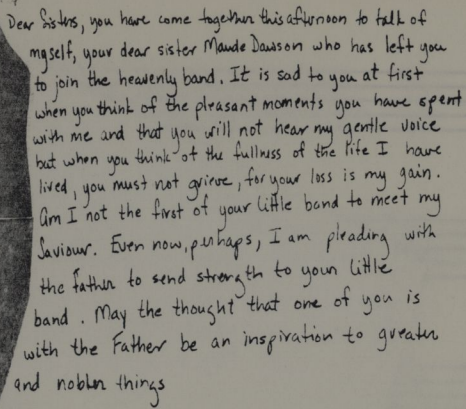 Dear Sisters, you have come together this afternoon to talk of
myself, your dear sister Maude Dawson who has left you
to join the heavenly band. It is sad to you at first
when you think of the pleasant moments you have spent
with me and that you will not hear my gentle voice
but when you think of the fullness of the life I have
lived, you must not grieve, for your loss is my gain.
Am I not the first of your little band to meet my
Saviour. Even now, perhaps, I am pleading with
the Father to send strength to your little
band. May the thought that one of you is
with the Father be an inspiration to greater
and nobler things